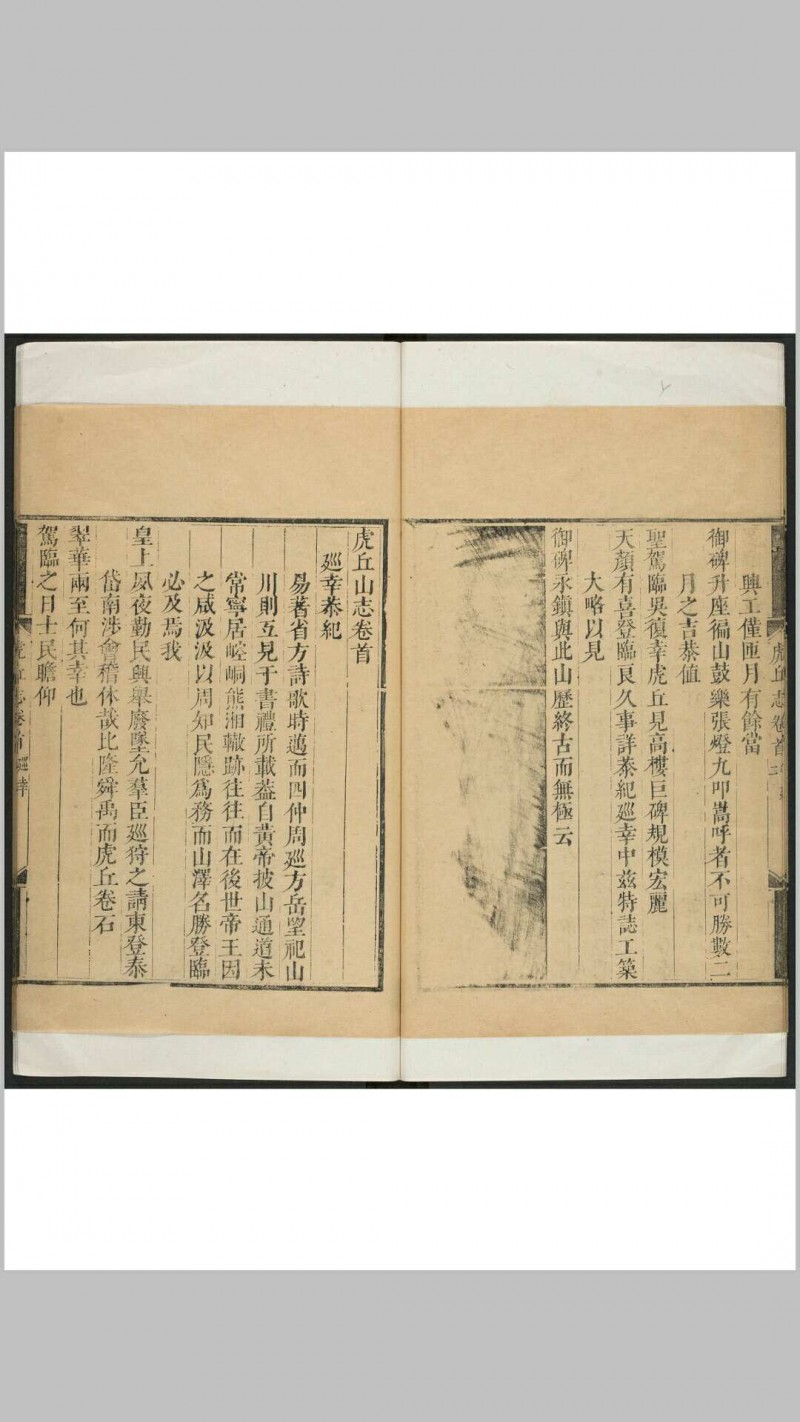 興工僅匝月有餘當
御碑升座徧山鼓樂張燈九叩嵩呼者不可勝數二
月之吉恭值
聖駕臨吳復幸虎丘見高樓巨碑規模宏麗
天顏有喜登臨良久事詳恭紀巡幸中兹特誌工築
大略以見
御碑永鎮與此山歷終古而無極云
虎丘山志卷首
廵幸恭紀
易著省方詩歌時邁而四仲周廵方岳望祀山
川則互見于書禮所載葢自黃帝披山通道未
常寧居崆峒熊湘轍跡往往而在後世帝王因
之咸汲汲以周知民隱爲務而山澤名勝登臨
必及焉我
皇上夙夜勤民興舉廢墜允羣臣廵狩之請東登泰
岱南涉會稽休哉比隆舜禹而虎丘卷石
翠華兩至何其幸也
駕臨之日士民瞻仰
虎丘志卷首 廵幸